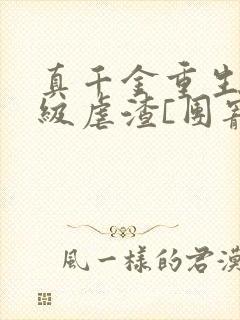 真千金重生
級虐渣[團寵
風一樣的君漠